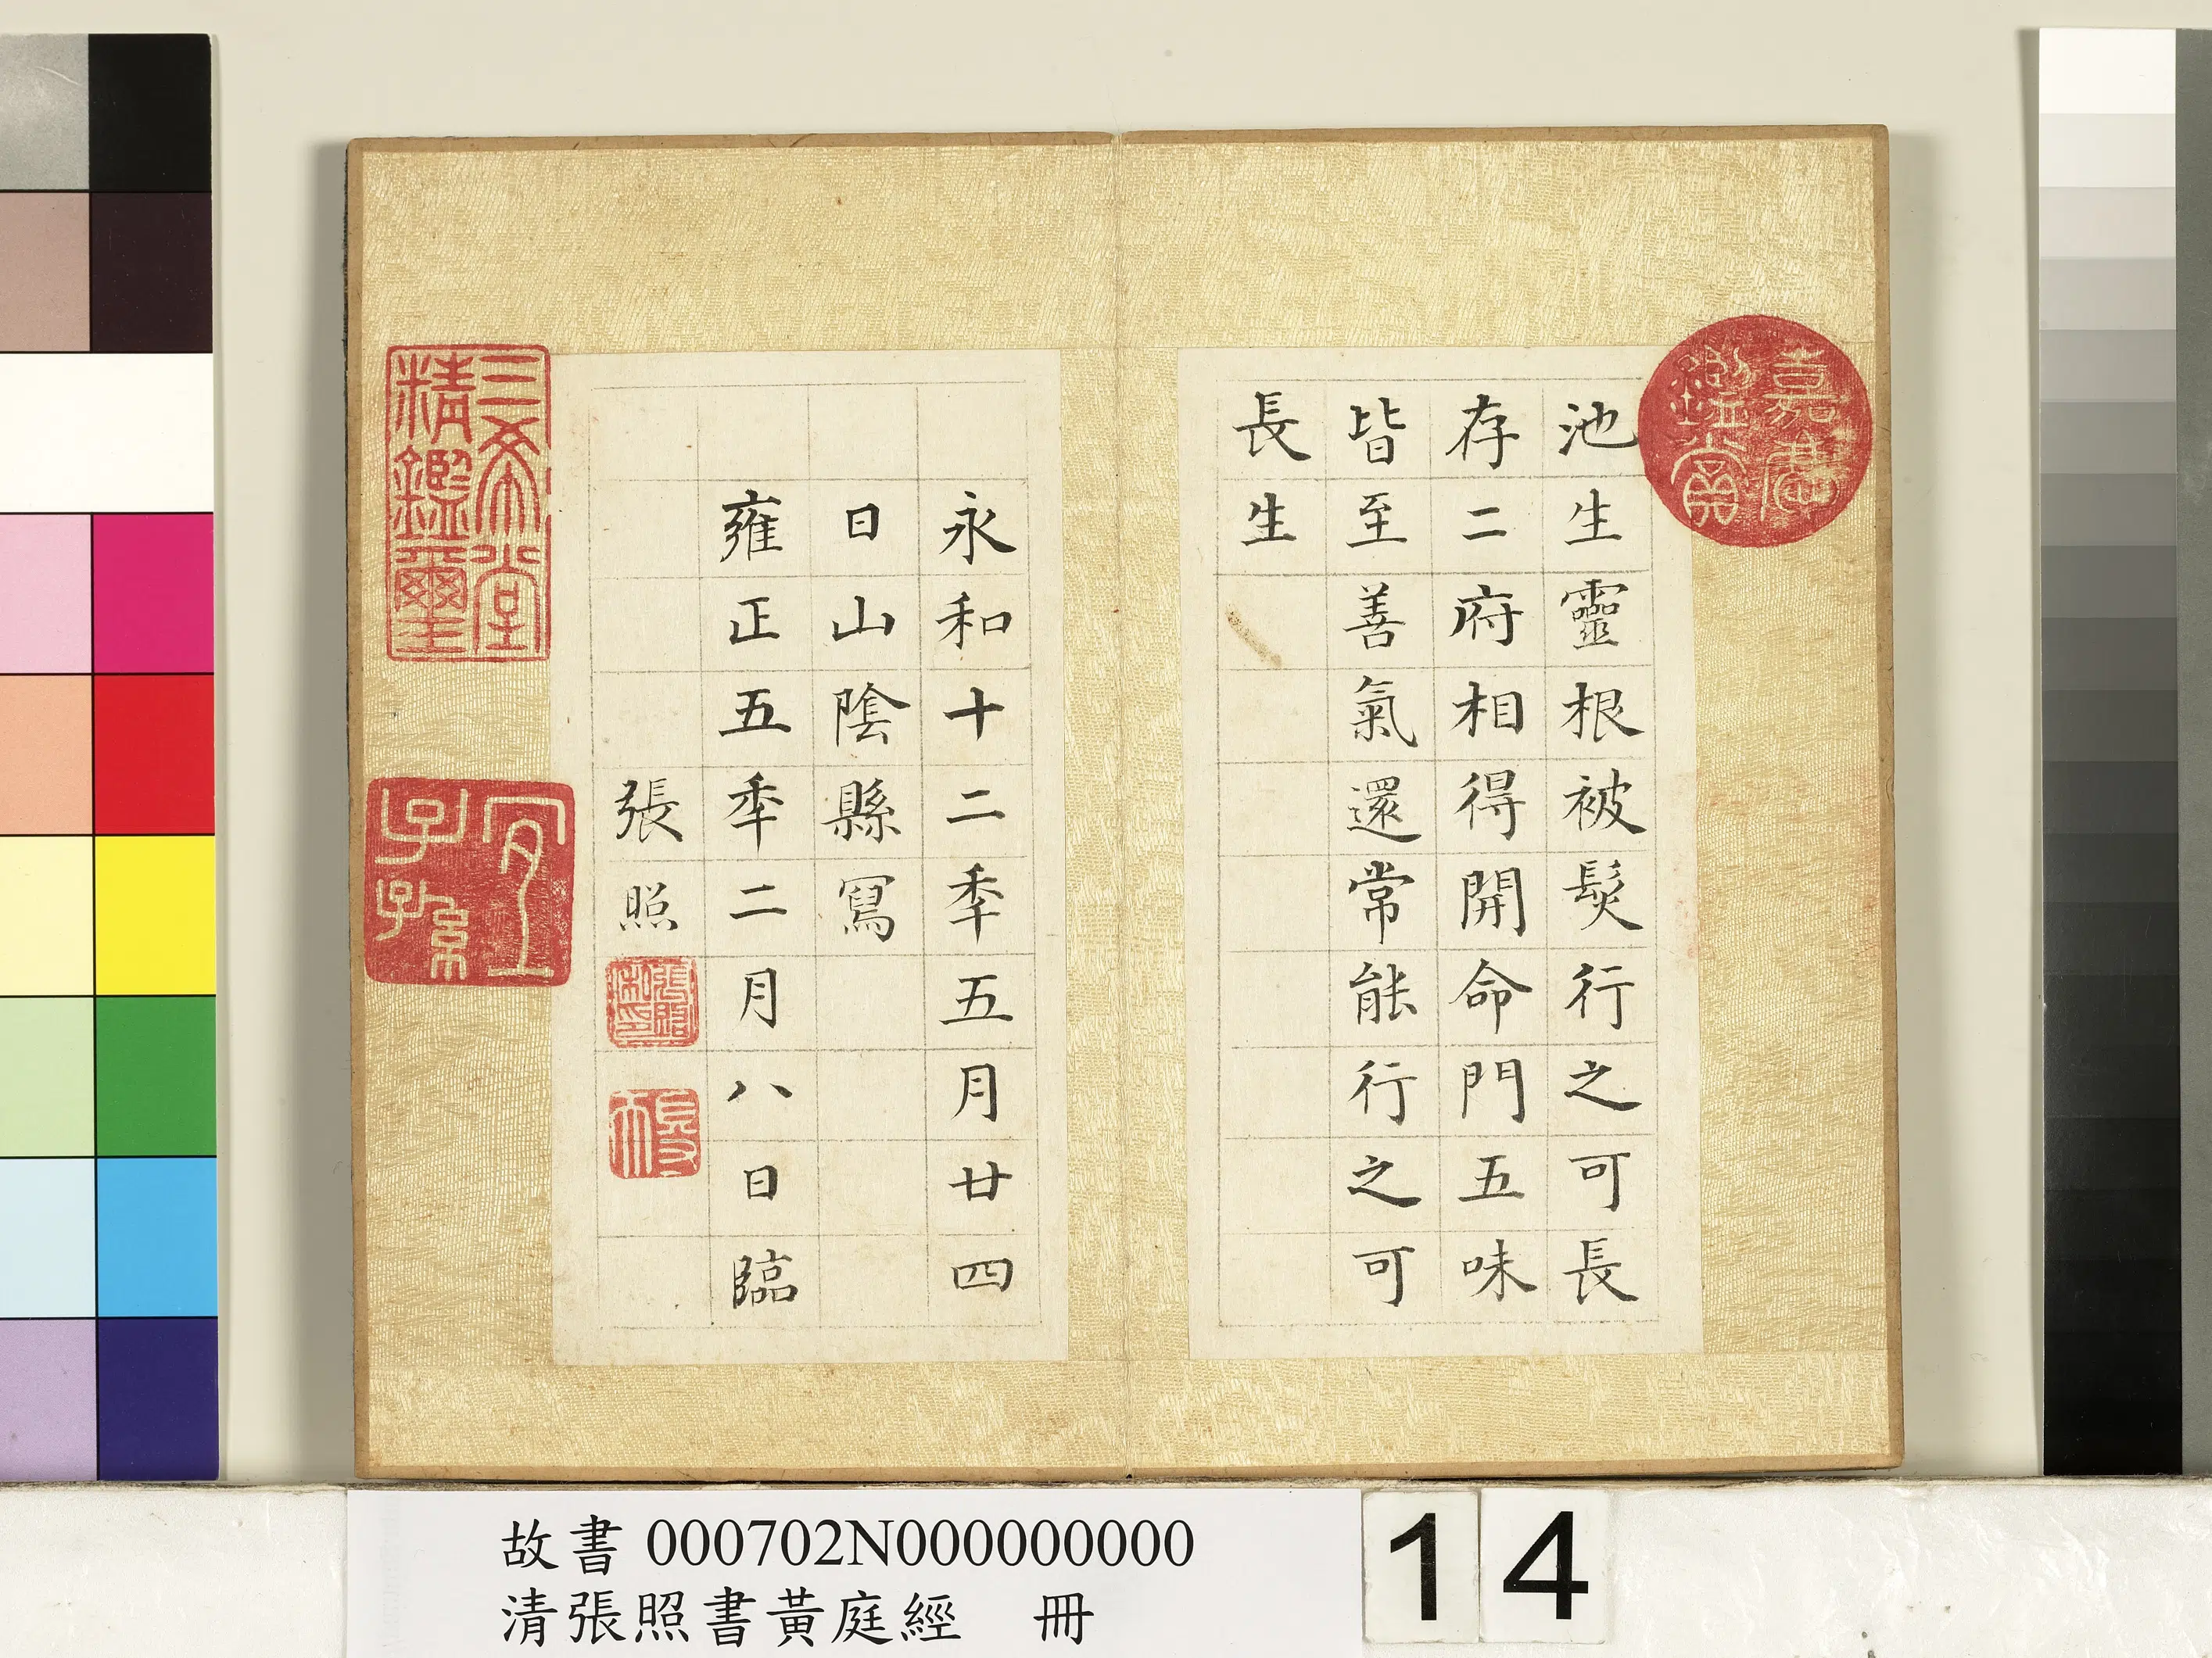 池生靈根被髮行之可長
存二府相得開命門五味
皆至善氣還常能行之可
長生
永和十二季五月廿四
日山陰縣寫
雍正五年二月八日臨
張照
嘉慶鑑賞
三希堂精鑑璽
宜子孫
故書 000702N000000000
清張照書黃庭經 冊
14